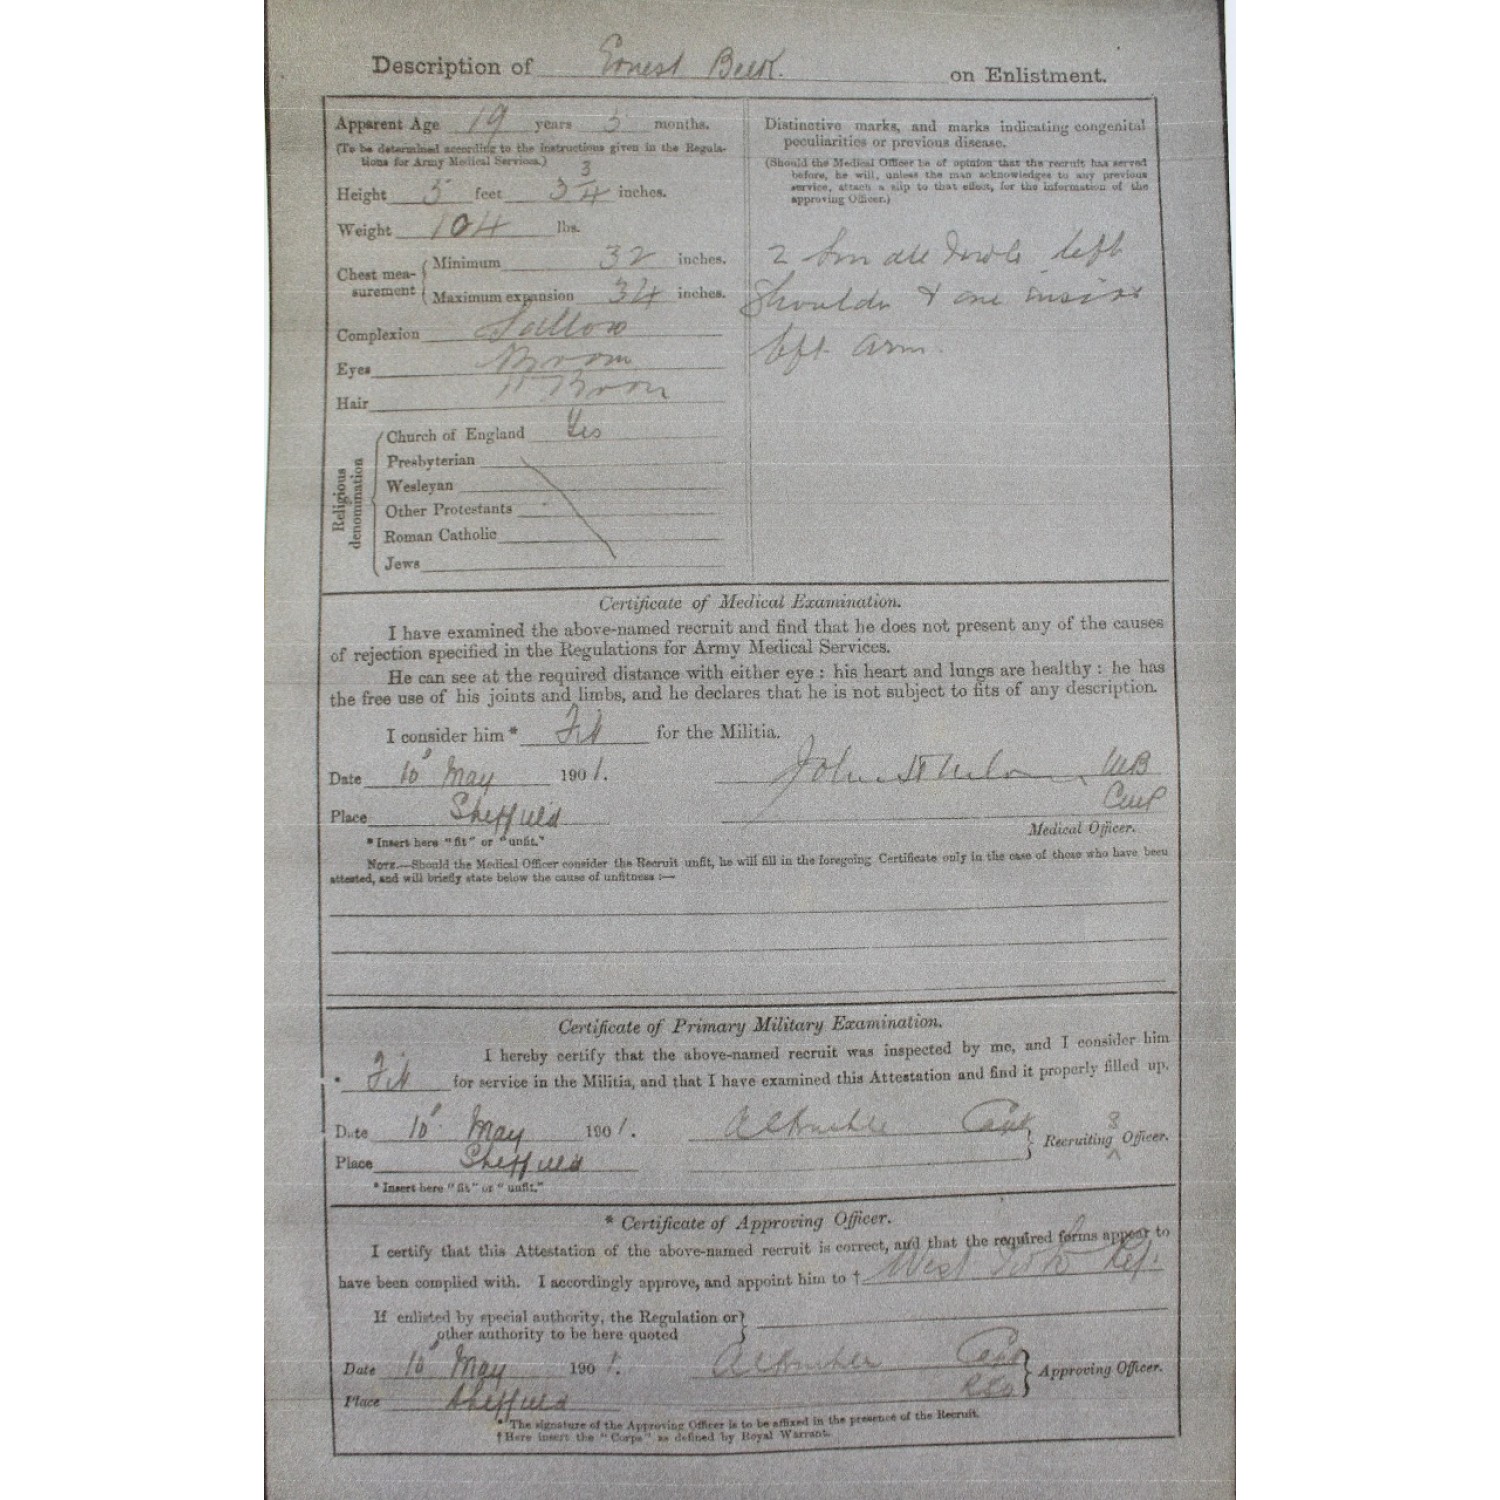 Description of Ernest on Enlistment.
Apparent Age 19 years months.
(To be determined according to the instructions given in the Regula-
tions for Army Medical Services.)
Height 5 feet 3 3/4 inches.
Weight 104 lbs.
Chest mea-
surement
Minimum 32 inches.
Maximum expansion 34 inches.
Complexion Sallow
Eyes
Hair
Religious
denomination
Church of England Yes
Presbyterian
Wesleyan
Other Protestants
Roman Catholic
Jews
Distinctive marks, and marks indicating congenital
peculiarities or previous disease.
(Should the Medical Officer be of opinion that the recruit has served
before, he will, unless the man acknowledges to any previous
service, attach a slip to that effect, for the information of the
approving Officer.)
2 Small left
Shoulder & one inside
left arm.
Certificate of Medical Examination.
I have examined the above-named recruit and find that he does not present any of the causes
of rejection specified in the Regulations for Army Medical Services.
He can see at the required distance with either eye : his heart and lungs are healthy : he has
the free use of his joints and limbs, and he declares that he is not subject to fits of any description.
I consider him * Fit for the Militia.
Date 10 May 1901. John MB
Place Sheffield
Medical Officer.
* Insert here "fit" or "unfit."
NOTE.—Should the Medical Officer consider the Recruit unfit, he will fill in the foregoing Certificate only in the case of those who have been
attested, and will briefly state below the cause of unfitness :—
Certificate of Primary Military Examination.
I hereby certify that the above-named recruit was inspected by me, and I consider him
* Fit for service in the Militia, and that I have examined this Attestation and find it properly filled up.
Date 10 May 1901. Capt Recruiting Officer.
Place Sheffield
* Insert here "fit" or "unfit."
* Certificate of Approving Officer.
I certify that this Attestation of the above-named recruit is correct, and that the required forms appear to
have been complied with. I accordingly approve, and appoint him to † West
If enlisted by special authority, the Regulation or
other authority to be here quoted
Date 10 May 1901. Capt Approving Officer.
Place Sheffield
* The signature of the Approving Officer is to be affixed in the presence of the Recruit.
† Here insert the "Corps" as defined by Royal Warrant.